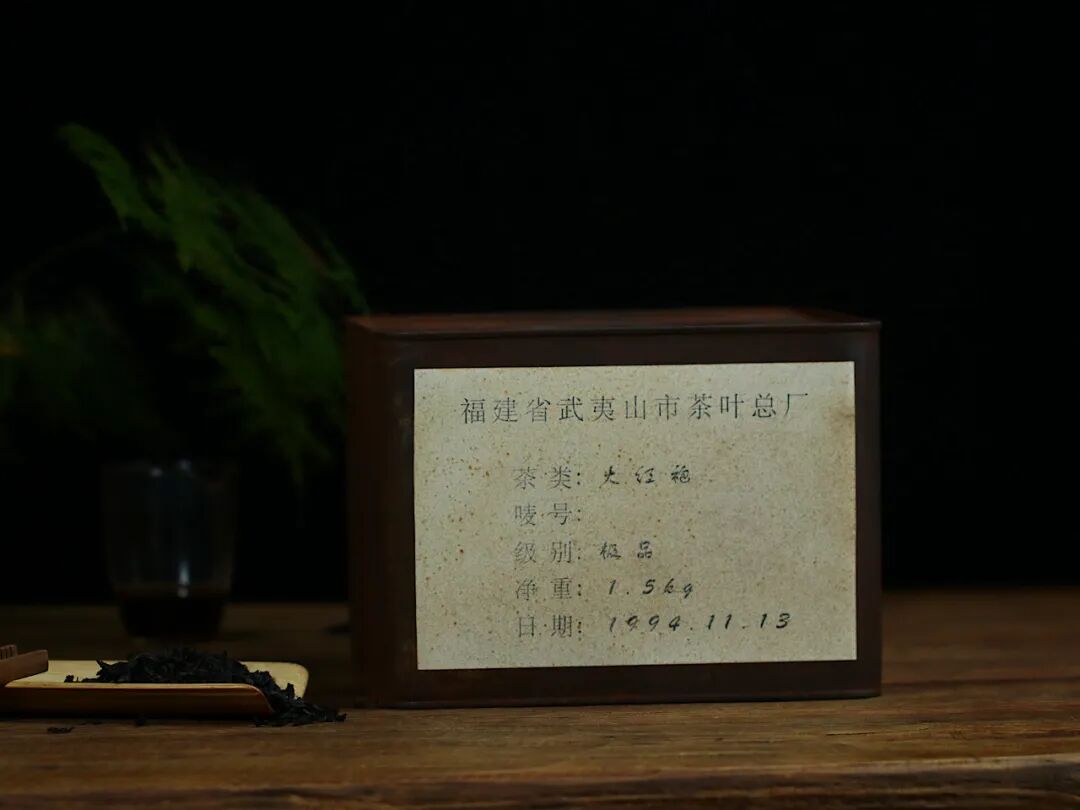 福建省武夷山市茶叶总厂
茶类:大红袍
唛号:
级别:极品
净重:1.5kg
日期:1994.11.13